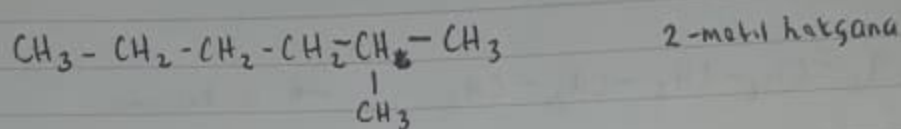 CH3 - CH2 - CH2 - CH2 - CH - CH3 2-metil heksana
|
CH3